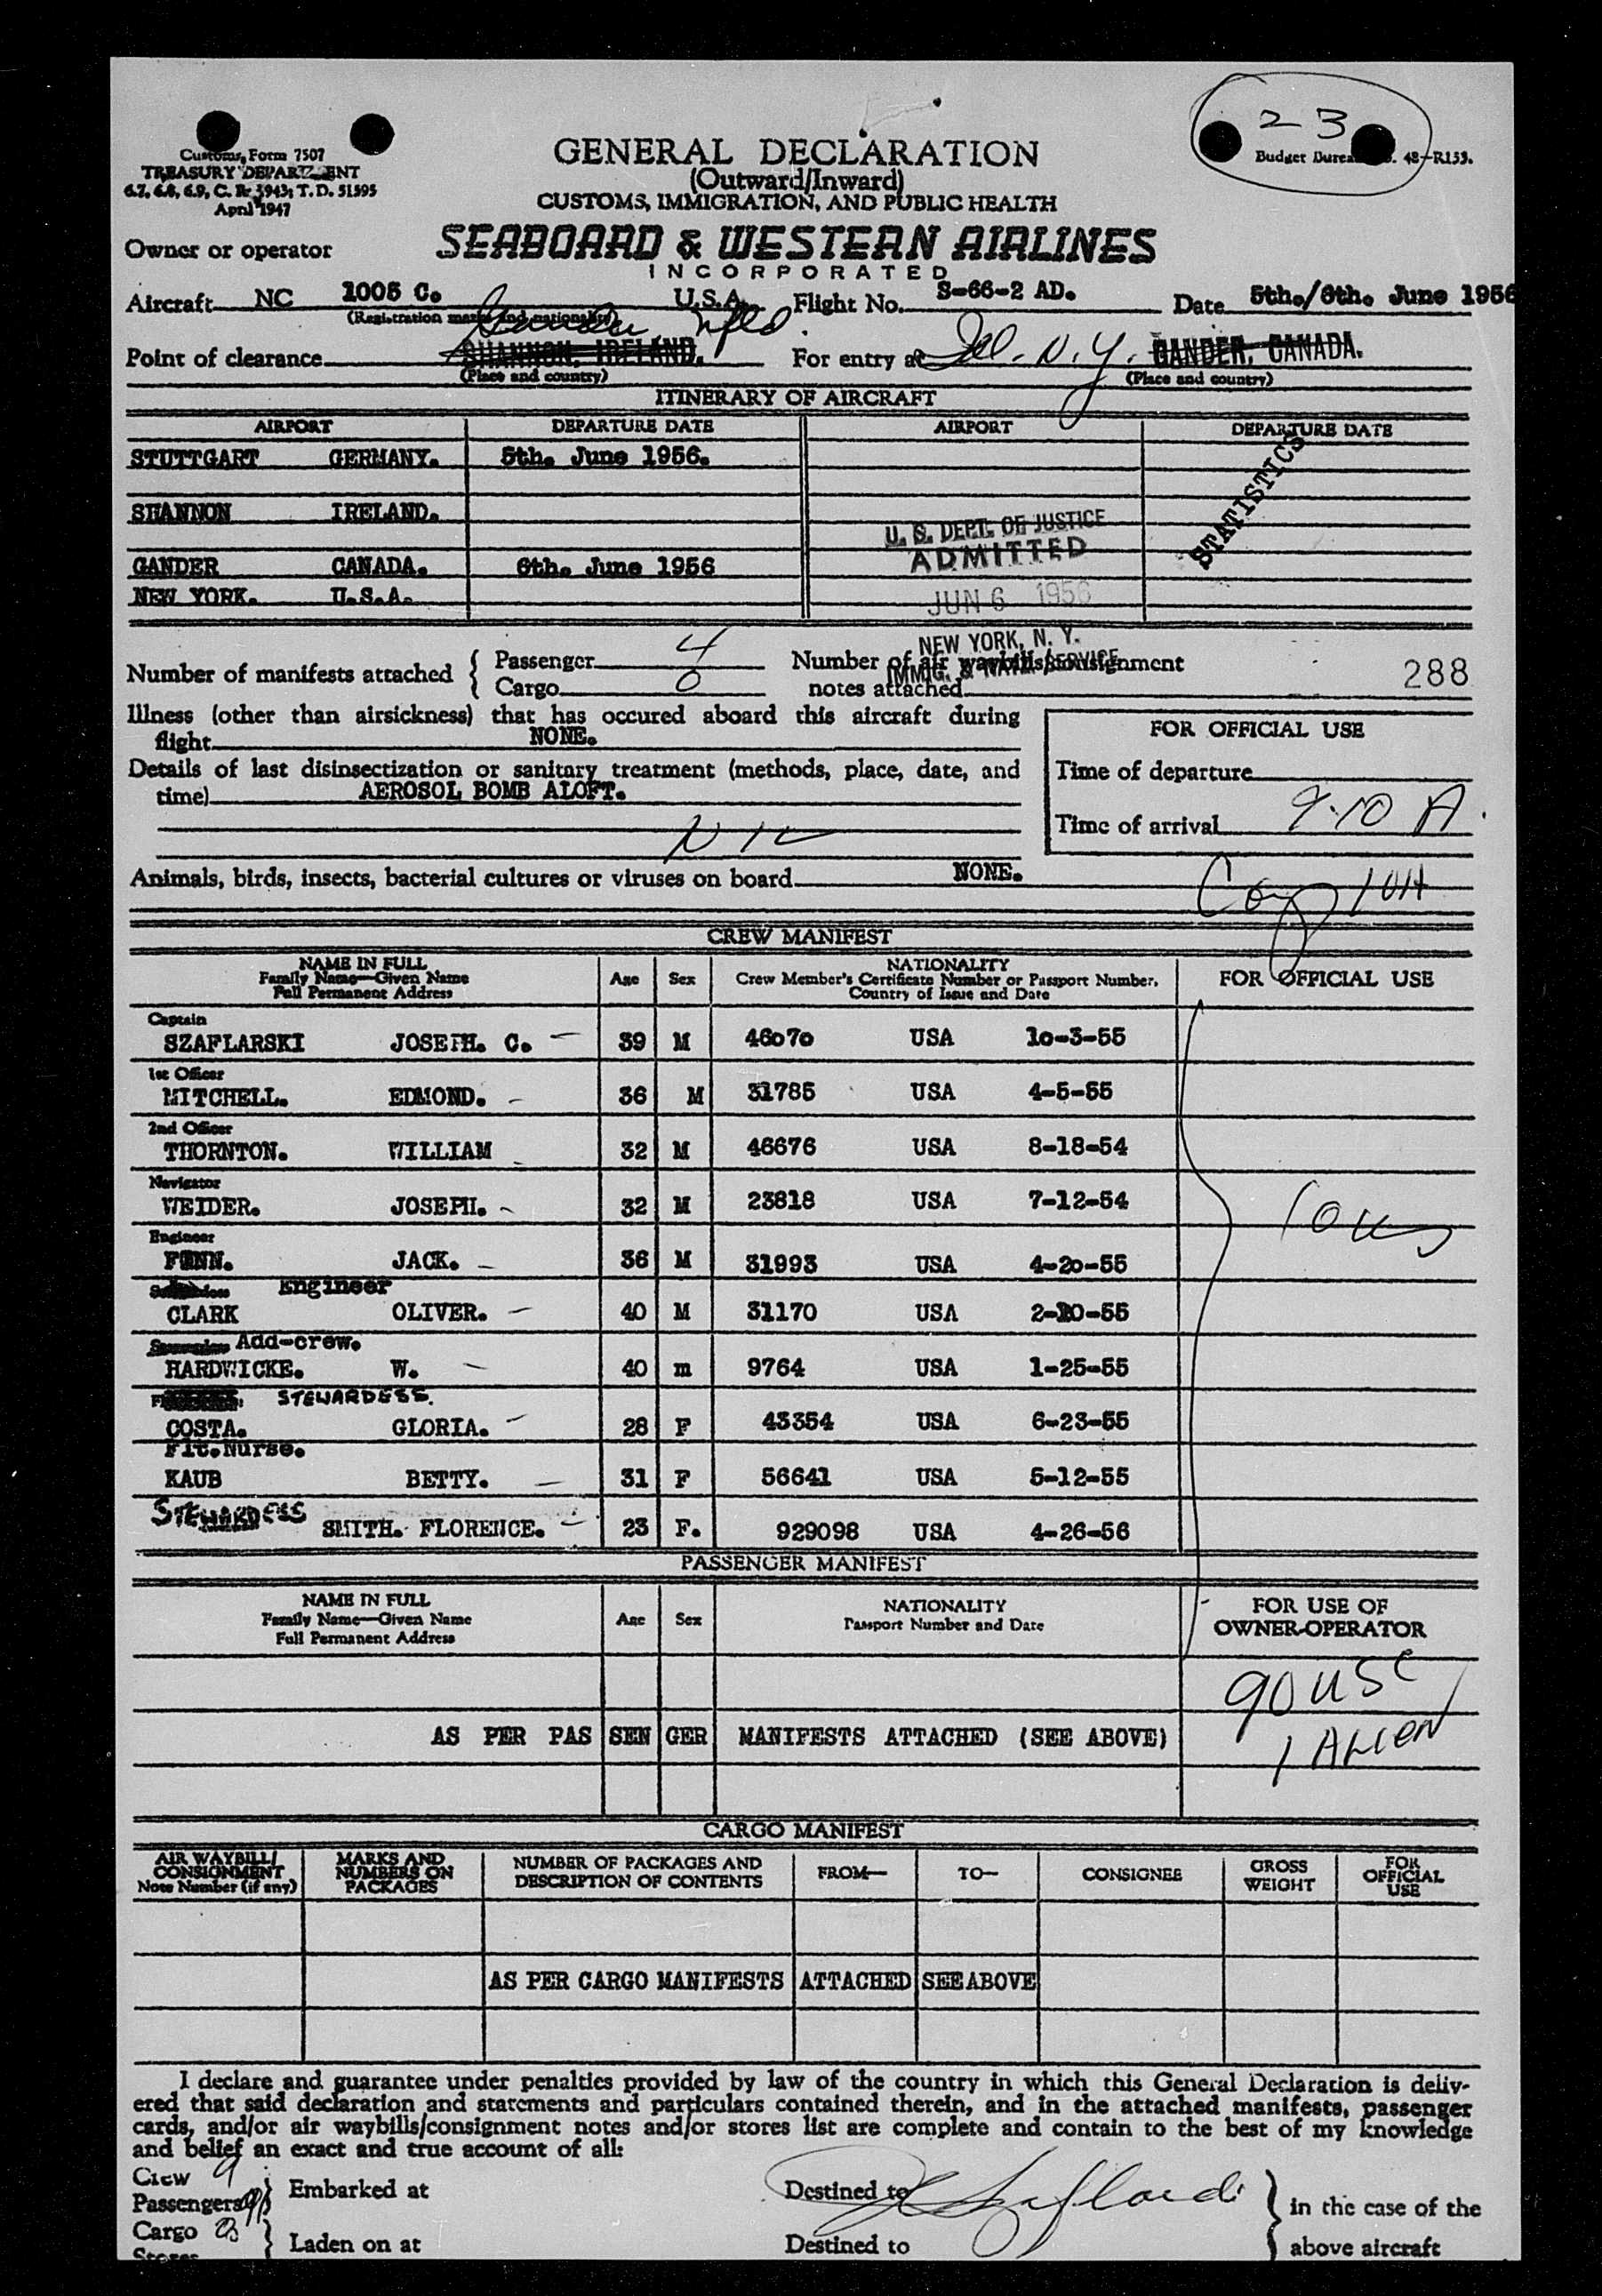 23
Customs Form 7507
TREASURY DEPARTMENT
6.7, 6.8, 6.9, C. R. 1943; T. D. 51595
April 1947
GENERAL DECLARATION
(Outward/Inward)
CUSTOMS, IMMIGRATION, AND PUBLIC HEALTH
Budget Bureau 48-R153.
Owner or operator SEABOARD & WESTERN AIRLINES
INCORPORATED
Aircraft NC 1005 C. U.S.A. Flight No. S-66-2 AD. Date 5th./6th. June 1956
(Registration marks and nationality)
Gander Nfld.
Point of clearance SHANNON. IRELAND. For entry at Idl. N.Y. GANDER. CANADA.
(Place and country) (Place and country)
ITINERARY OF AIRCRAFT
AIRPORT DEPARTURE DATE AIRPORT DEPARTURE DATE
STUTTGART GERMANY. 5th. June 1956.
STATISTICS
SHANNON IRELAND.
U. S. DEPT. OF JUSTICE
ADMITTED
GANDER CANADA. 6th. June 1956
JUN 6 1956
NEW YORK. U.S.A.
NEW YORK, N. Y.
IMMIG. & NATZ. SERVICE
Number of manifests attached { Passenger 4 Number of air waybills/consignment
Cargo 0 notes attached 288
Illness (other than airsickness) that has occured aboard this aircraft during
flight NONE.
FOR OFFICIAL USE
Details of last disinsectization or sanitary treatment (methods, place, date, and
time) AEROSOL BOMB ALOFT.
Time of departure
Time of arrival 9.10 A.
Animals, birds, insects, bacterial cultures or viruses on board NONE.
CREW MANIFEST
NAME IN FULL
Family Name—Given Name
Full Permanent Address
Age Sex
NATIONALITY
Crew Member's Certificate Number or Passport Number.
Country of Issue and Date
FOR OFFICIAL USE
Captain
SZAFLARSKI JOSEPH. C. — 39 M 46070 USA 10-3-55
1st Officer
MITCHELL. EDMOND. - 36 M 31785 USA 4-5-55
2nd Officer
THORNTON. WILLIAM 32 M 46676 USA 8-18-54
Navigator
WEIDER. JOSEPH. - 32 M 23818 USA 7-12-54
Engineer
JACK. - 36 M 31993 USA 4-20-55
Engineer
CLARK OLIVER. — 40 M 31170 USA 2-10-55
Add-crew.
HARDWICKE. W. — 40 m 9764 USA 1-25-55
STEWARDESS.
COSTA. GLORIA. - 28 F 43354 USA 6-23-55
Flt.Nurse.
KAUB BETTY. — 31 F 56641 USA 5-12-55
STEWARDESS
SMITH. FLORENCE. - 23 F. 929098 USA 4-26-56
PASSENGER MANIFEST
NAME IN FULL
Family Name—Given Name
Full Permanent Address
Age Sex
NATIONALITY
Passport Number and Date
FOR USE OF
OWNER-OPERATOR
90 USC
AS PER PAS SEN GER MANIFESTS ATTACHED (SEE ABOVE)
1 ALIEN
CARGO MANIFEST
AIR WAYBILL/
CONSIGNMENT
Note Number (if any)
MARKS AND
NUMBERS ON
PACKAGES
NUMBER OF PACKAGES AND
DESCRIPTION OF CONTENTS
FROM— TO— CONSIGNEE
GROSS
WEIGHT
FOR
OFFICIAL
USE
AS PER CARGO MANIFESTS ATTACHED SEE ABOVE
I declare and guarantee under penalties provided by law of the country in which this General Declaration is deliv-
ered that said declaration and statements and particulars contained therein, and in the attached manifests, passenger
cards, and/or air waybills/consignment notes and/or stores list are complete and contain to the best of my knowledge
and belief an exact and true account of all:
Crew 9
Passengers 91 } Embarked at Destined to } in the case of the
Cargo
Stores } Laden on at Destined to above aircraft